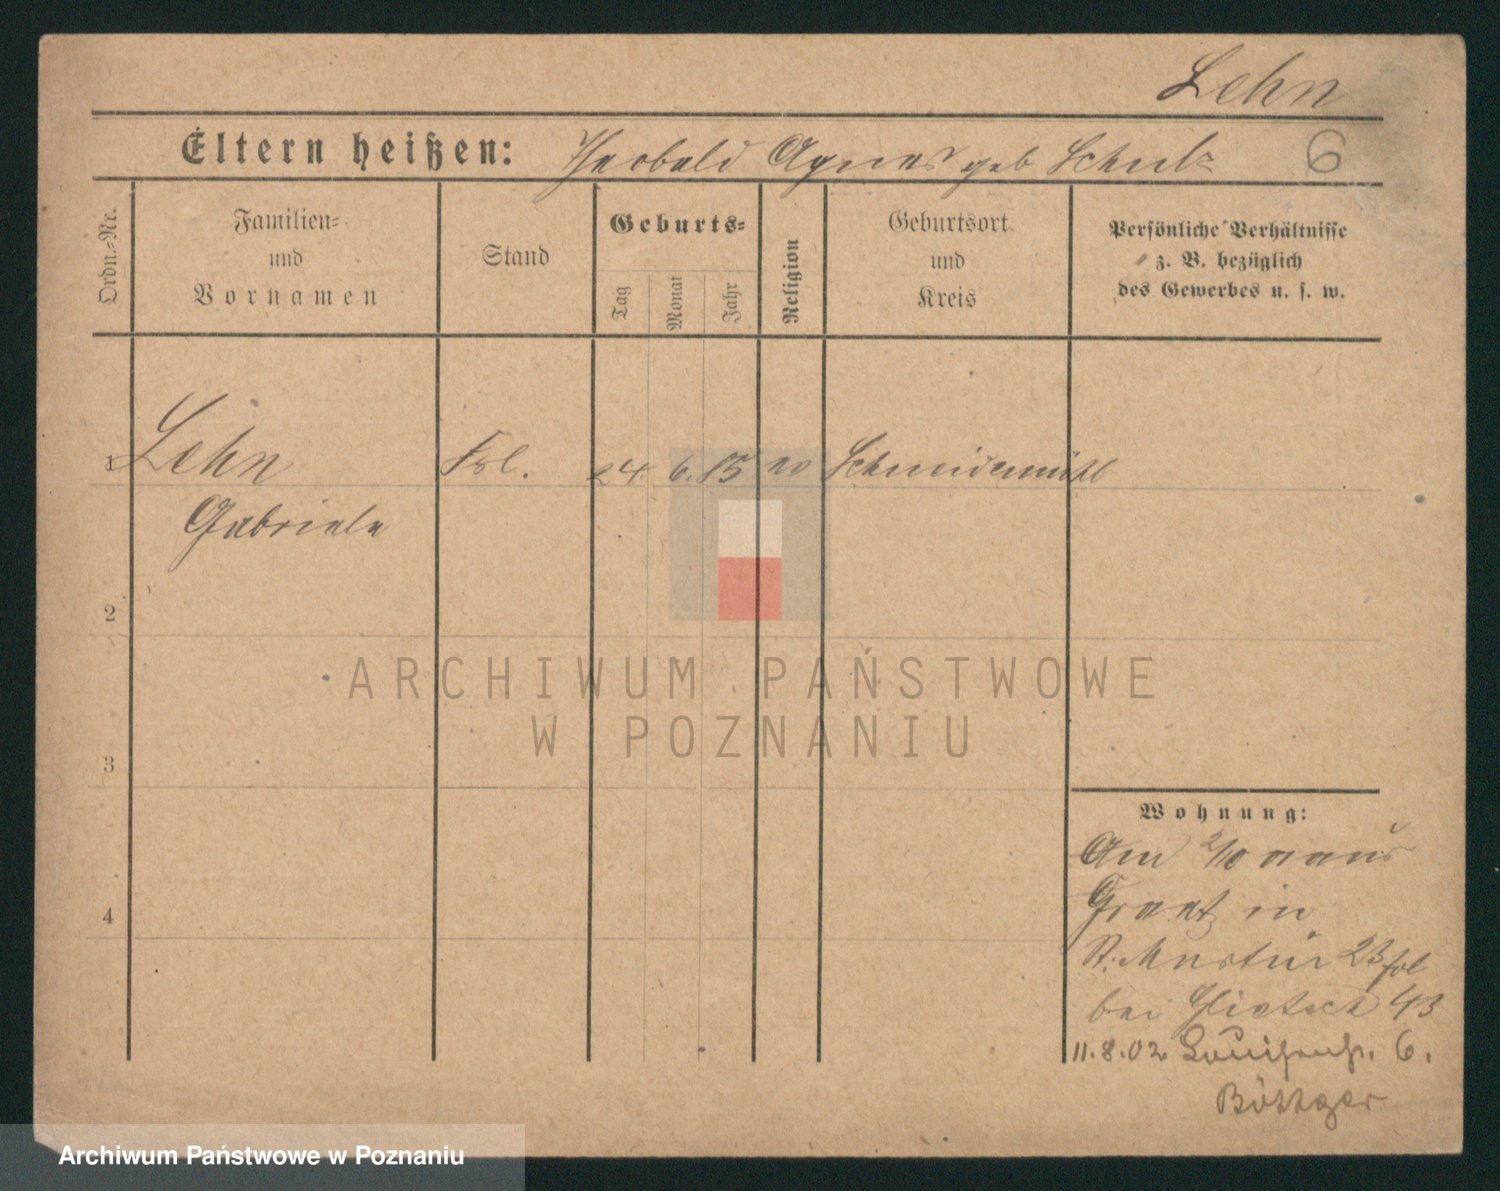 Lehn
Eltern heißen: Theobald Agnes geb Schulz 6
Ordn.-Nr.
Familien-
und
Vornamen
Stand
Geburts-
Tag
Monat
Jahr
Religion
Geburtsort
und
Kreis
Persönliche Verhältnisse
z. B. bezüglich
des Gewerbes u. s. w.
1 Lehn Frl. 24. 6. 85 ev Schneidemühl
Gabriele
2
3
4
Wohnung:
Am 2/10 aus
Graetz in
St. Martin 23
bei 43
11.8.02 Louisenstr. 6.
Böttger
ARCHIWUM PAŃSTWOWE
W POZNANIU
Archiwum Państwowe w Poznaniu